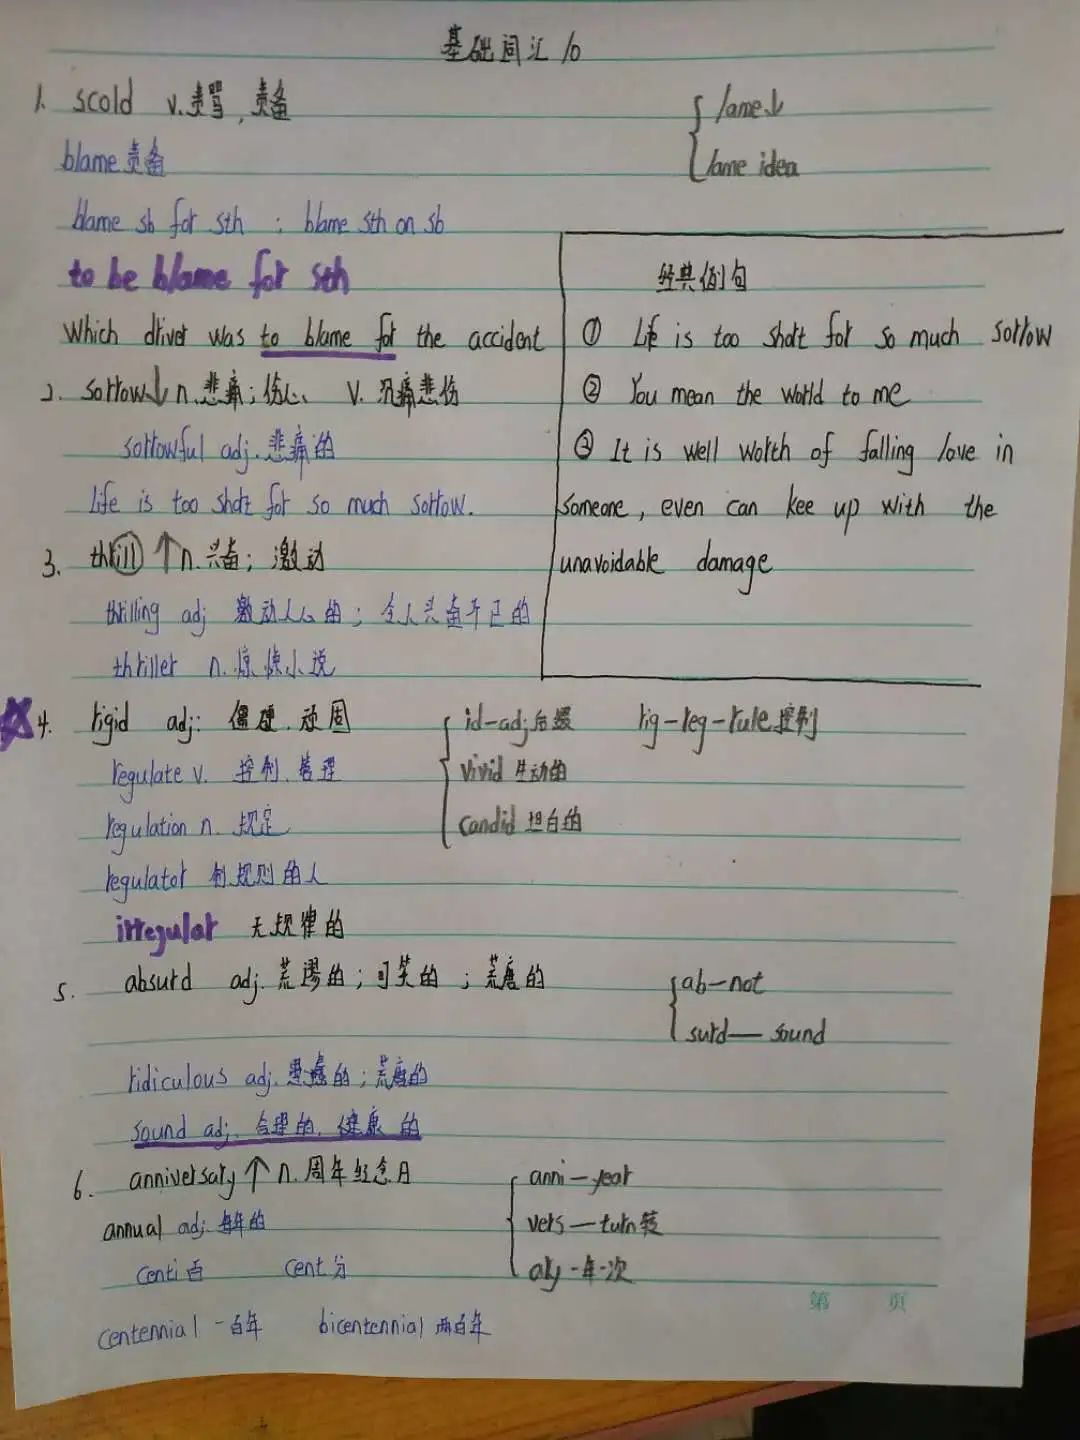 基础词汇 10
1. scold v.责骂,责备
{ lame↓
lame idea
blame 责备
blame sb for sth ; blame sth on sb
to be blame for sth
Which driver was to blame for the accident
2. sorrow↓ n.悲痛;伤心、 v. 沉痛悲伤
sorrowful adj.悲痛的
Life is too short for so much sorrow.
3. thrill ↑ n.兴奋; 激动
thrilling adj 激动人心的; 令人兴奋不已的
thriller n.惊悚小说
经典例句
① Life is too short for so much sorrow
② You mean the world to me
③ It is well worth of falling love in
someone, even can kee up with the
unavoidable damage
4. rigid adj: 僵硬.顽固
{ id-adj后缀 rig-reg-rule控制
vivid 生动的
candid 坦白的
regulate v. 控制.管理
regulation n. 规定
regulator 制规则的人
irregular 无规律的
5. absurd adj.荒谬的;可笑的;荒唐的
{ ab-not
surd— sound
ridiculous adj.愚蠢的;荒唐的
sound adj. 合理的.健康的
6. anniversary ↑ n.周年纪念日
{ anni-year
vers—turn转
ary-年-次
annual adj. 每年的
centi百 cent 分
centennial 一百年 bicentennial 两百年
第 页